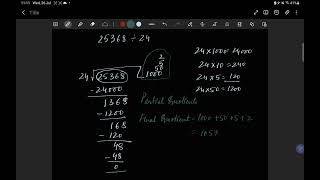 25368 ÷ 24
2
5
50
1000
24 25368
-24000
1368
-1200
168
-120
48
-48
0
24×1000=24000
24×10=240
24×5=120
24×50=1200
Partial Quotients
Final Quotient = 1000+50+5+2
= 1057